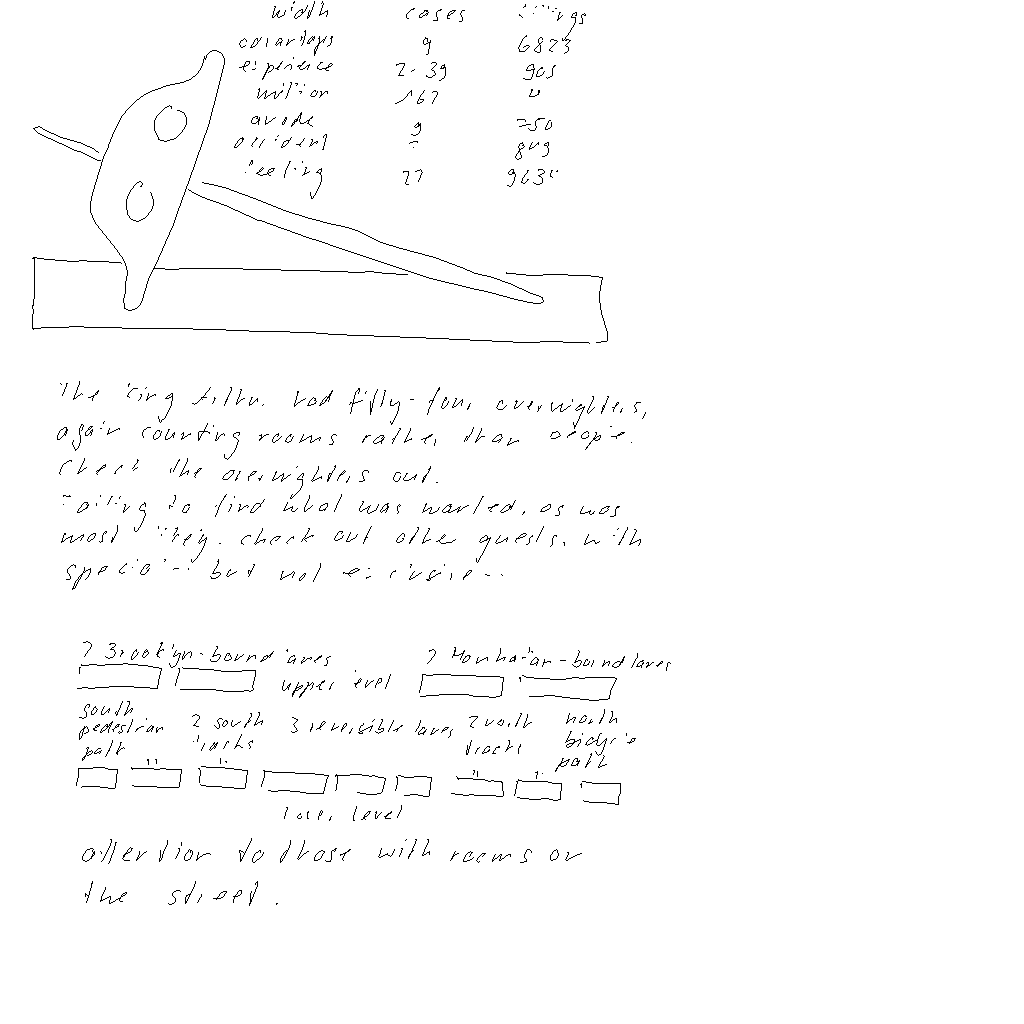 width cases
9 6823
experience 2-39 905
million 167
avoid 9 750
accident 849
feeling 27
The king had fifty-four overnighters,
again counting rooms rather than people.
Check the overnighters out.
Failing to find what was wanted, as was
most likely, check out other guests, with
special but not exclusive
2 Brooklyn-bound lanes 2 Manhattan-bound lanes
upper level
south pedestrian path 2 south tracks 3 reversible lanes 2 north tracks north bicycle path
lower level
attention to those with rooms on
the street.